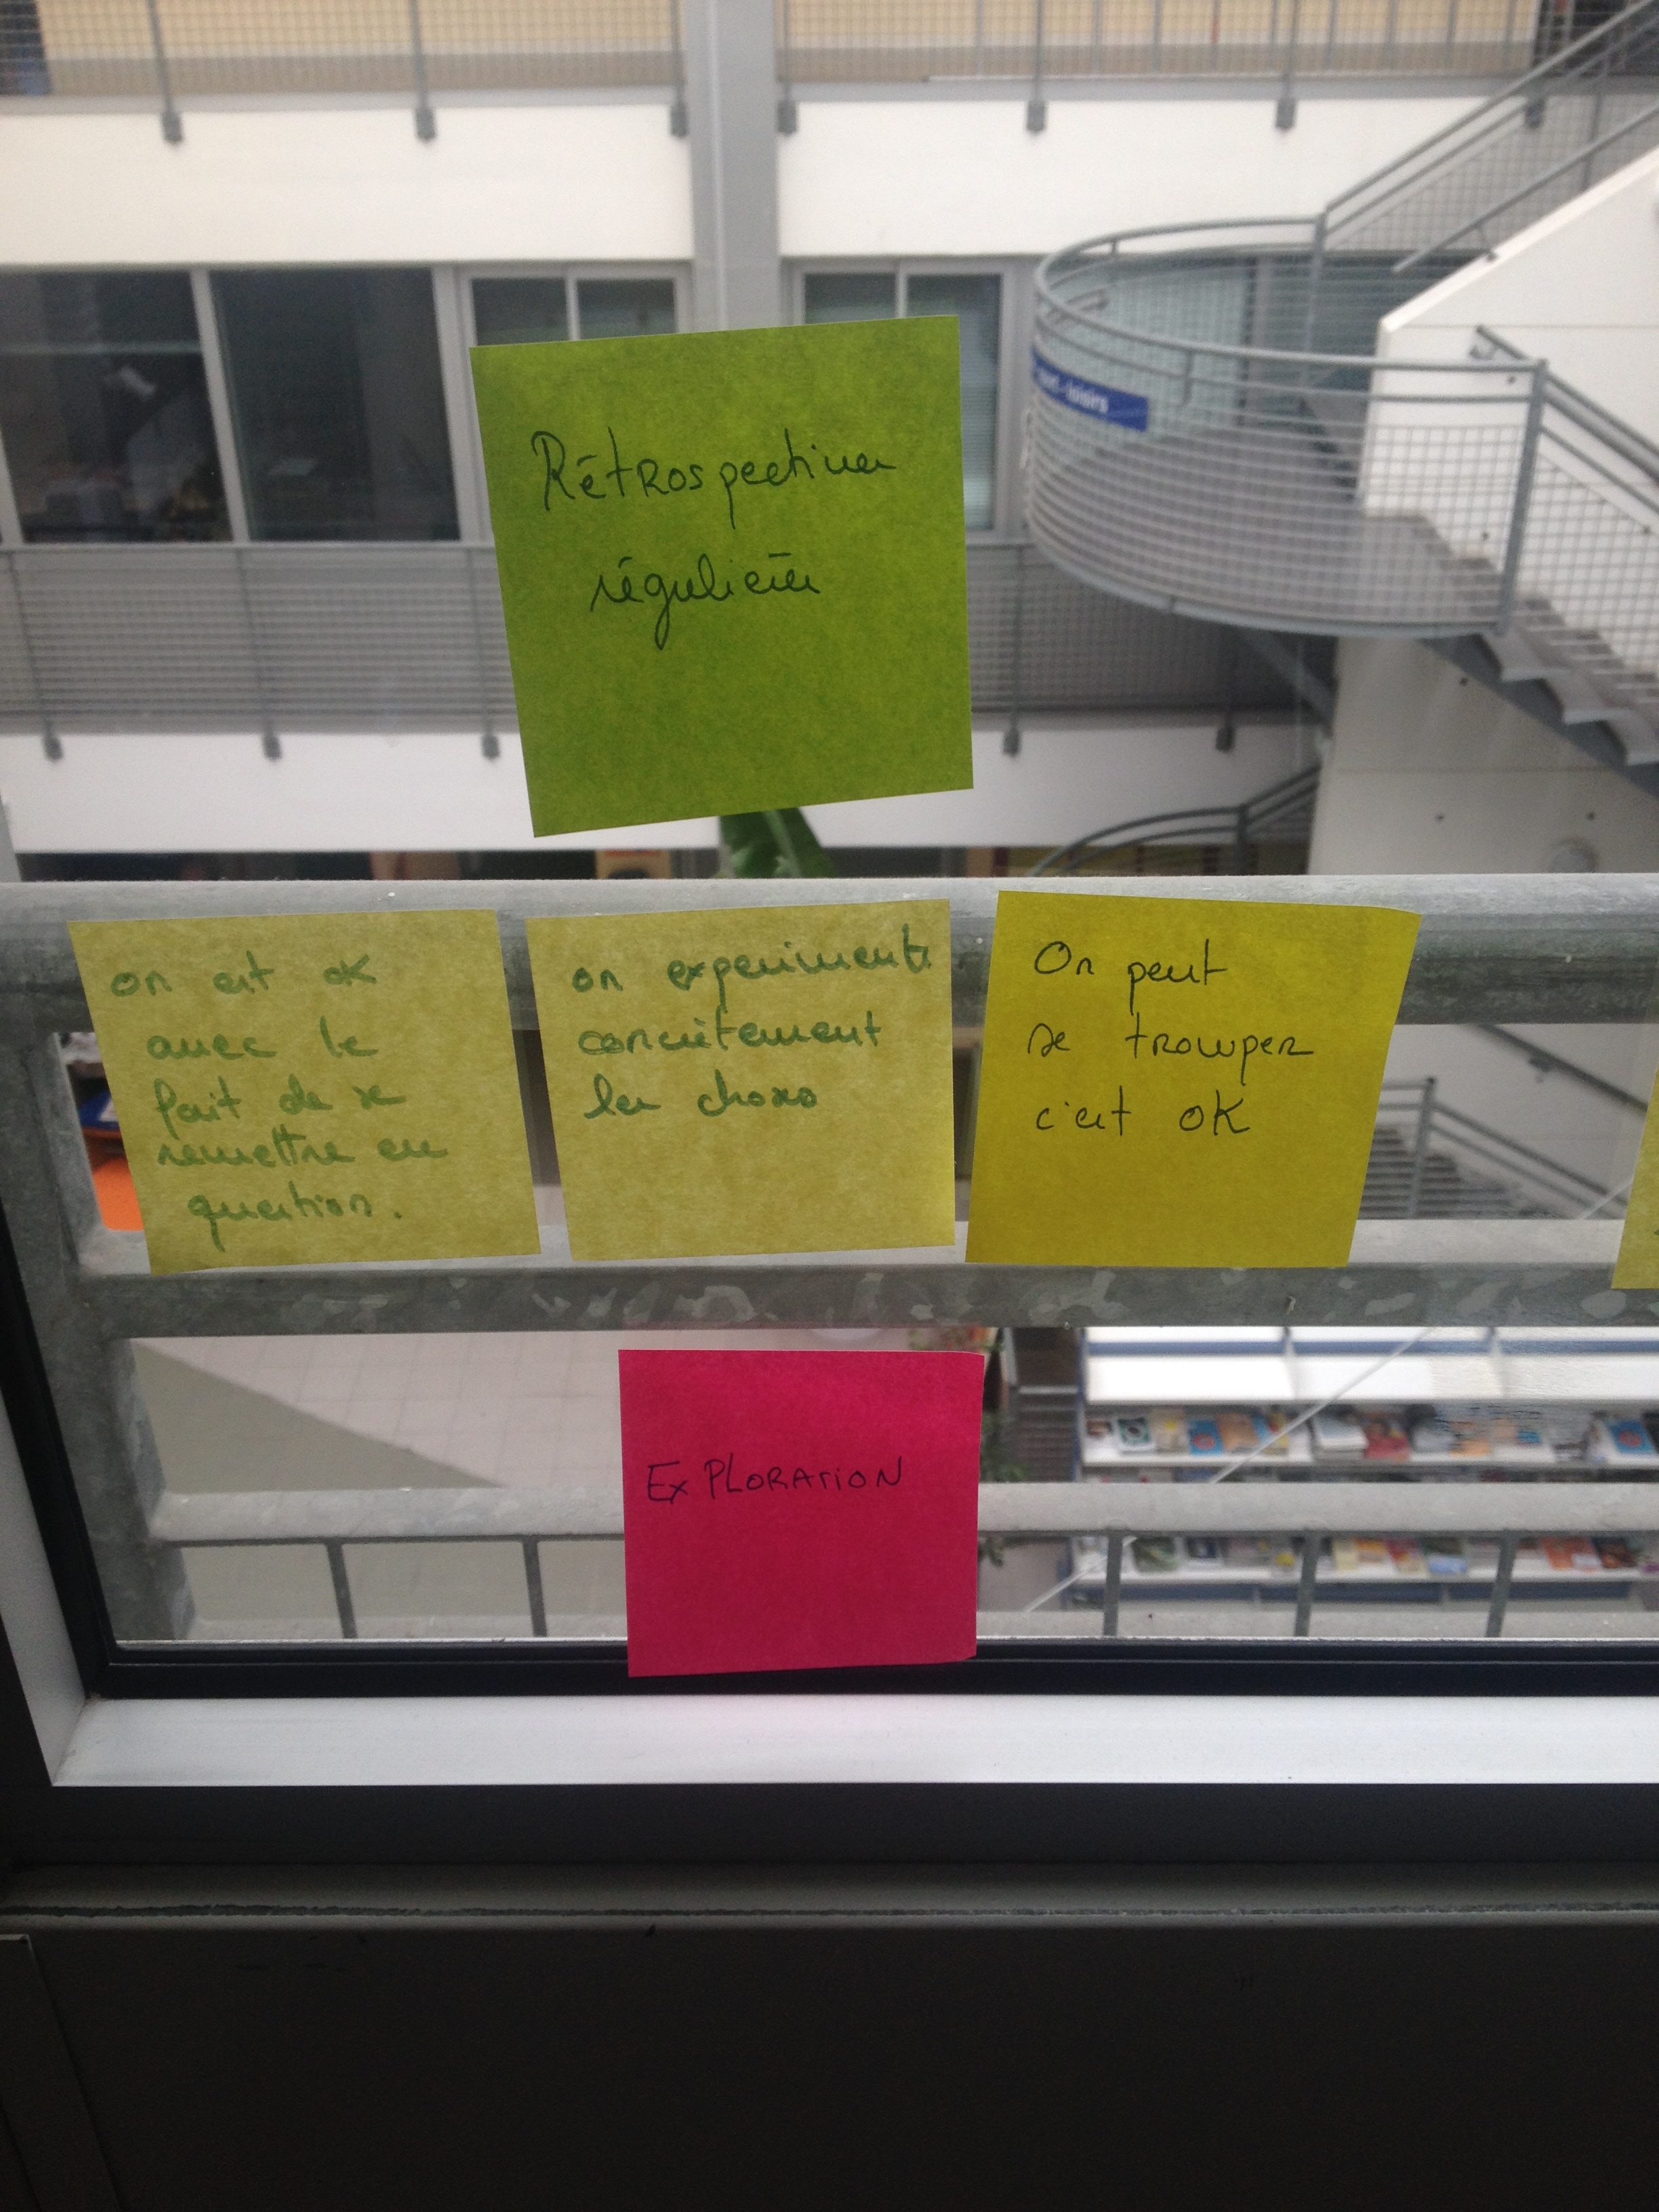 Rétrospectives
régulières
on est ok
avec le
fait de se
remettre en
question.
on experimente
concrètement
les choses
On peut
se tromper
c'est OK
EXPLORATION
loisirs